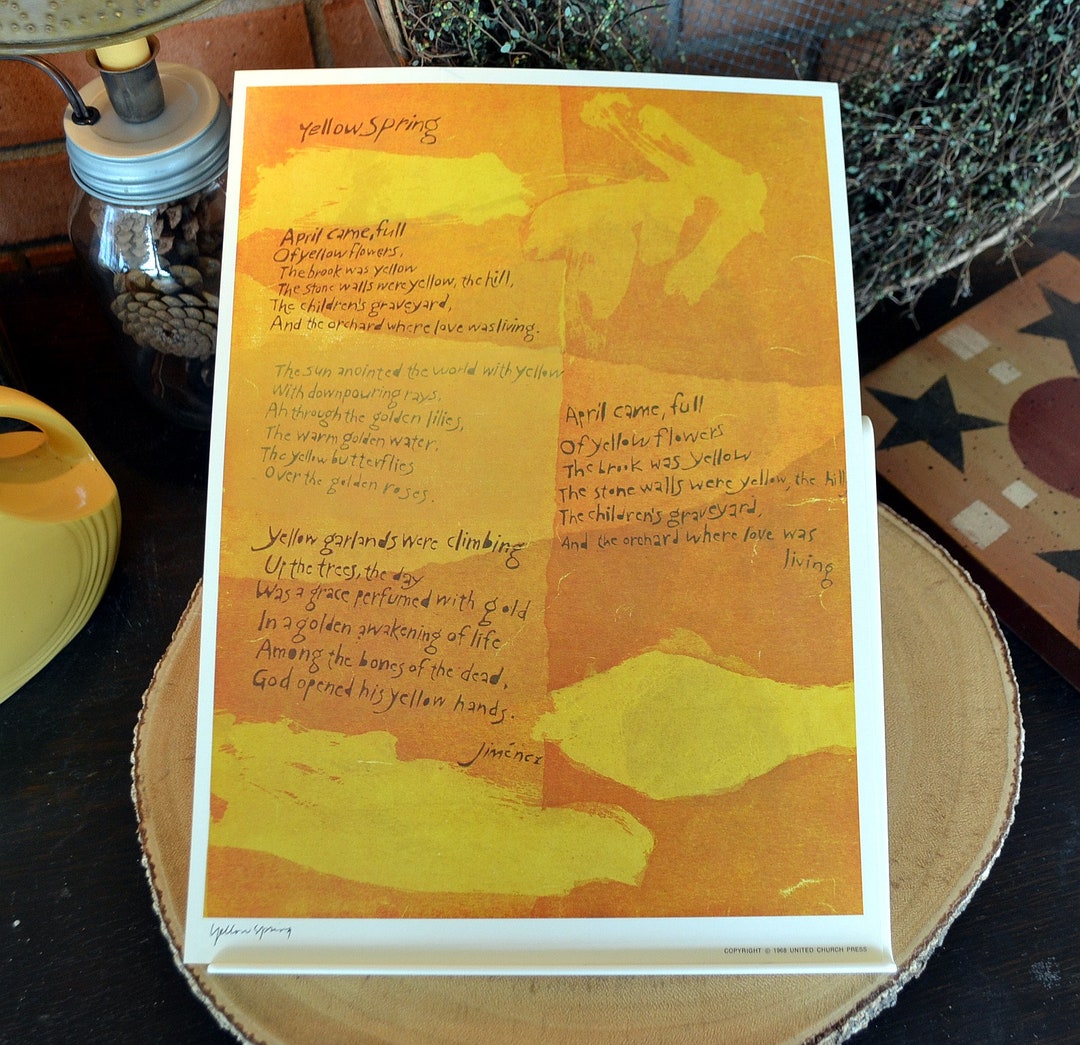 Yellow Spring
April came, full
Of yellow flowers,
The brook was yellow
The stone walls were yellow, the hill,
The children's graveyard,
And the orchard where love was living.
The sun anointed the world with yellow
With downpouring rays.
Ah through the golden lilies,
The warm golden water,
The yellow butterflies
Over the golden roses.
Yellow garlands were climbing
Up the trees, the day
Was a grace perfumed with gold
In a golden awakening of life
Among the bones of the dead,
God opened his yellow hands.
Jiménez
April came, full
Of yellow flowers
The brook was yellow
The stone walls were yellow, the hill
The children's graveyard,
And the orchard where love was
living
Yellow Spring
COPYRIGHT © 1968 UNITED CHURCH PRESS